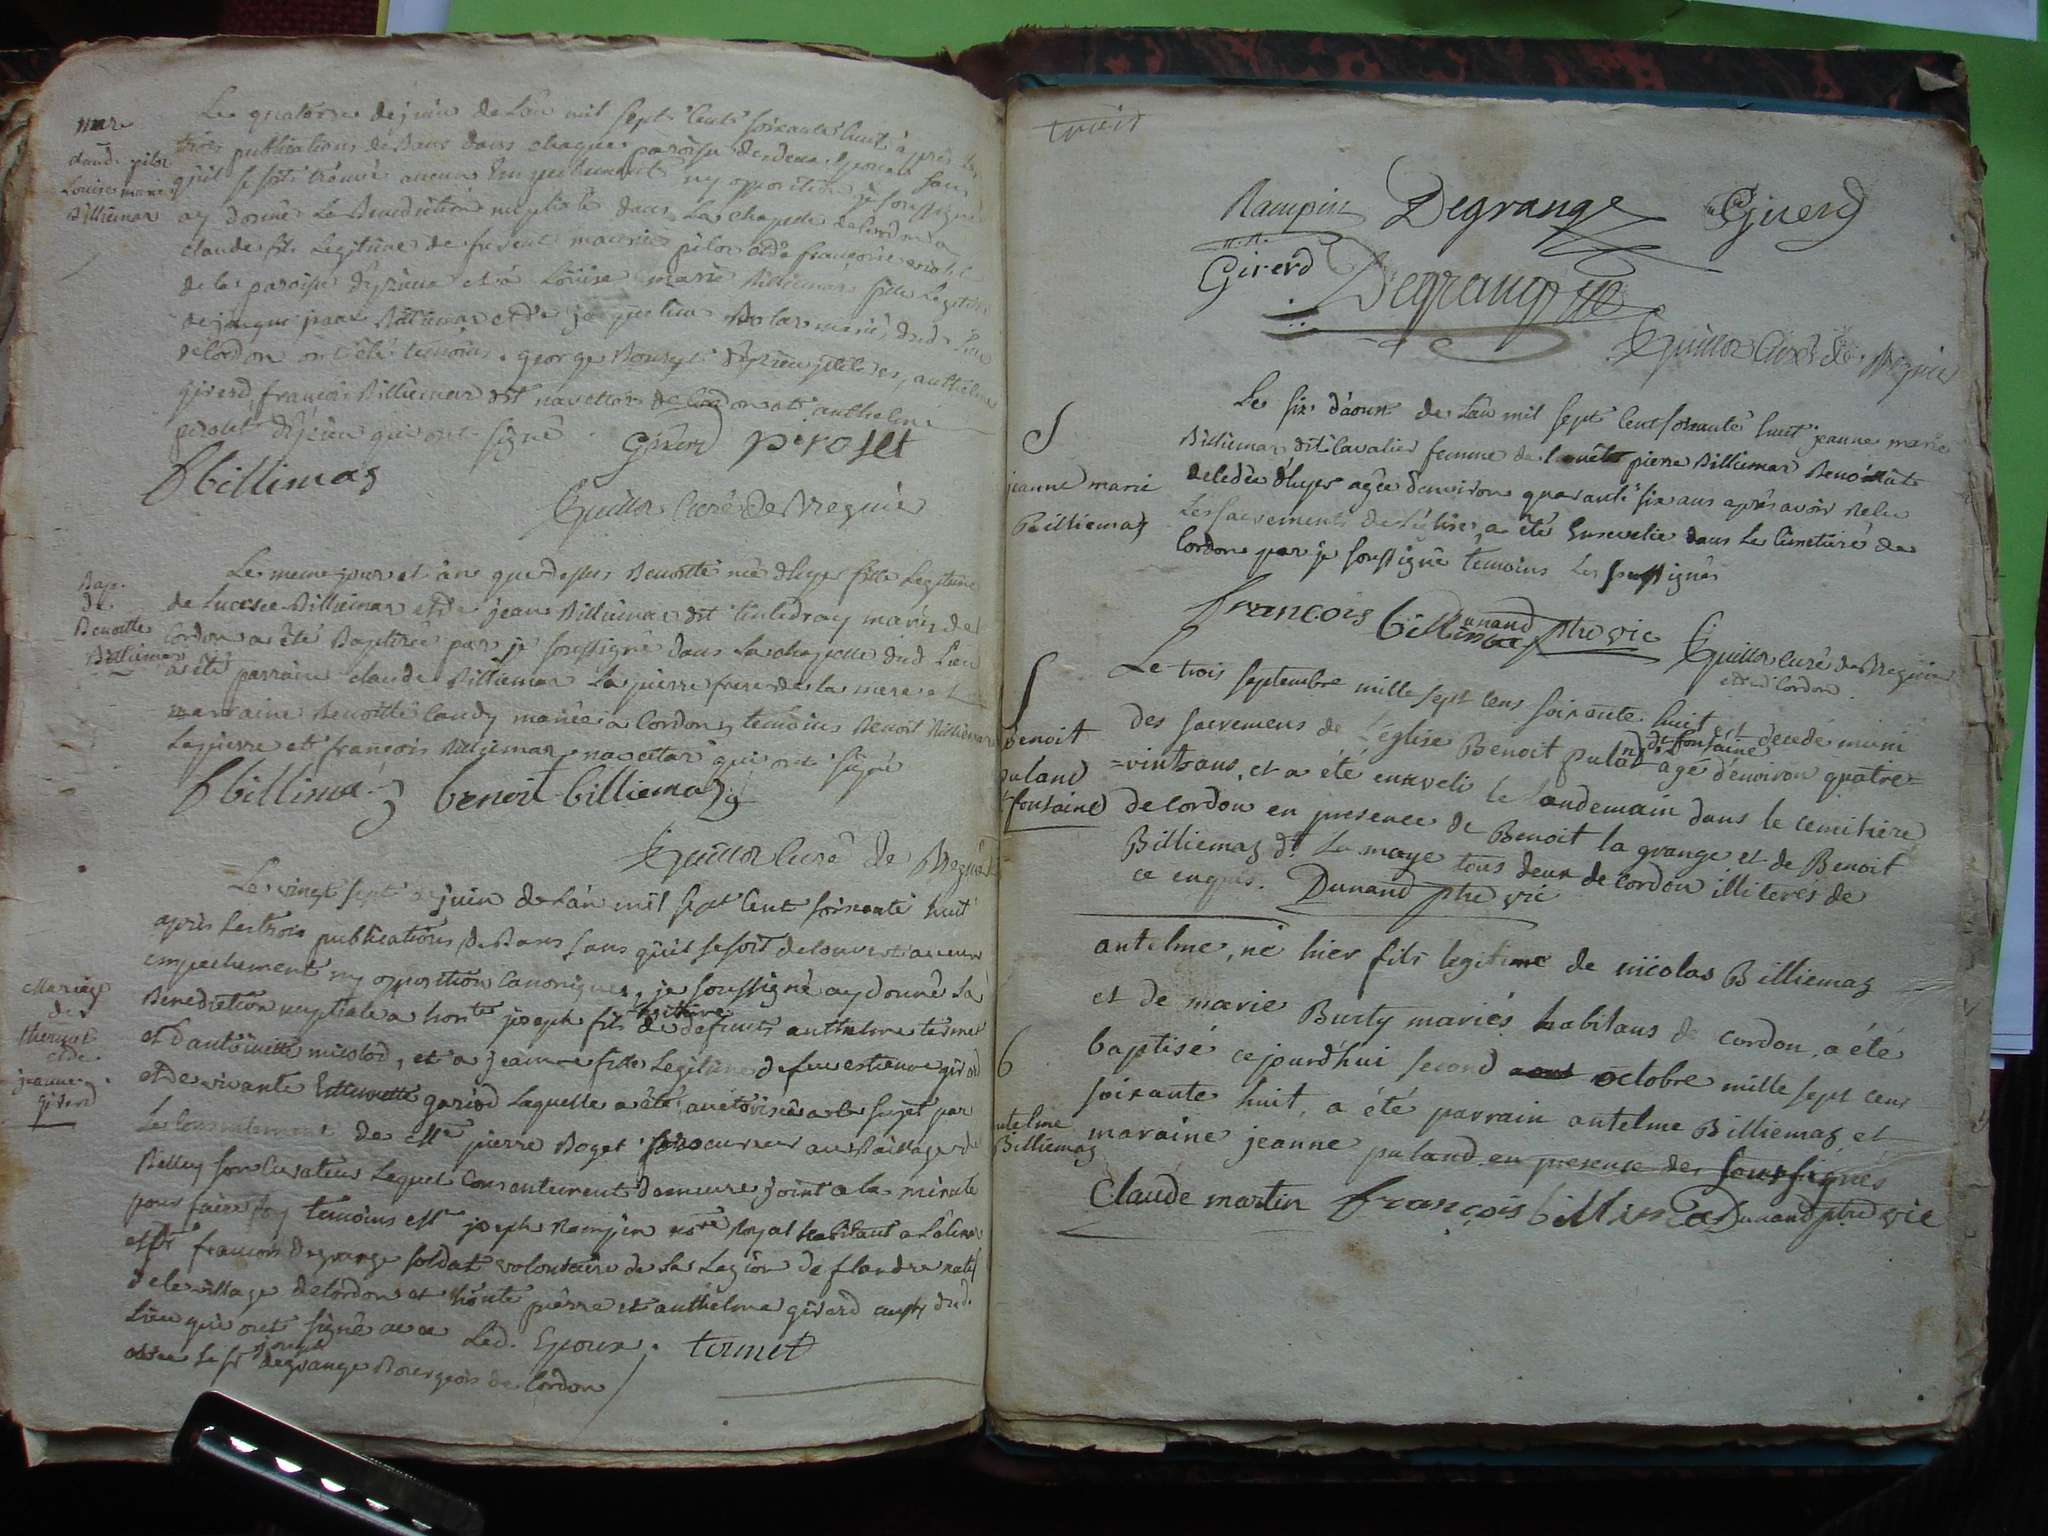 Le quatorze de juin de L'an mil sept Cent soixante huit après les
trois publications de Bans dans chaque paroisse des deux Epoux sans
qu'il se soit trouvé aucun Empechement ny opposition je soussigné
ay donné La Benediction nuptiale dans La chapele de Cordon à
claude fils Legitime de maurice pilor et de françoise
de la paroisse d'yzieu et à Loüise marie Billiemaz fille Legitime
de jaque Billiemaz et de jaqueline mariés dud. Lieu
de Cordon ont été temoins george d'yzieu anthelme
girerd, françois Billiemaz dit navettaz de Cordon et anthelme
pirolet d'yzieu qui ont signé
mar.
claude pilor
Louise marie
Billiemaz
Girerd pirolet
f billimaz
Guilloz Curé de Bregnié
Le meme jour et an que dessus Benoitte née d'hyer fille Legitime
de Lucrece Billiemaz et de jean Billiemaz dit mariés de
Cordon a été Baptisée par je soussigné dans La chapelle dud Lieu
a été parrain claude Billiemaz La pierre frere de la mere et
marraine Benoitte Candy mariée a Cordon, temoins Benoit Billiemaz
Lapierre et françois Billiemaz navettaz qui ont signé
Bap.
de
Benoitte
Billiemaz
f billimaz benoit billiemaz
Guilloz Curé de Bregnié
Le vingt sept de juin de L'an mil sept Cent soixante huit
après Les trois publications de Bans sans qu'il se soit decouvert aucun
empechement ny opposition Canonique, je soussigné ay donné La
Benediction nuptiale a honte joseph fils de defunts anthelme termet
et d'antoinette micolod, et a jeanne fille Legitime de feu estienne girerd
et de vivante gariod Laquelle a été autorisée a ce sujet par
Le Consentement de Me pierre Boget procureur au Bailliage de
Belley son Curateur Lequel Consentement demeure joint a la minute
pour faire foy temoins Me joseph Rampin nore Royal habitant a
françois Degrange soldat volontaire de La Legion de flandre natif
de le village de Cordon et honte pierre et anthelme girerd dud.
Lieu qui ont signé avec Led. Epoux. termet
avec Le sr joseph degrange Bourgeois de Cordon
Mariage
de
termet
et de
jeanne
girerd
trois
Rampin Degrange Girerd
Girerd Degrange
Guilloz Curé de Bregnié
Le six d'aoust de L'an mil sept Cent soixante huit jeanne marie
Billiemaz dite Cavalier femme de honête pierre Billiemaz Benoit
decedée d'hyer agée d'environ quarante six ans après avoir
Les sacrements de L'eglise, a été Ensevelie dans Le Cimetière de
Cordon par je soussigné temoins Les soussignés
S
jeanne marie
Billiemaz
françois billimaz Dunand ptre vic Guilloz Curé de Bregnié
et de Cordon.
Le trois septembre mille sept cens soixante huit est decedé muni
des sacremens de L'église Benoit puland dt fontaine agé d'environ quatre=
=vint ans, et a été enseveli le Landemain dans le cemitière
de cordon en presence de Benoit la grange et de Benoit
Billiemaz dt La maye tous deux de cordon illiterés de
ce enquis. Dunand ptre vic
S
Benoit
puland
dt fontaine
antelme, né hier fils legitime de nicolas Billiemaz
et de marie Burty mariés habitans de cordon, a été
baptisé cejourd'hui second octobre mille sept cens
soixante huit, a été parrain antelme Billiemaz et
maraine jeanne puland en presence des soussignés
6
antelme
Billiemaz
Claude martin françois billimaz Dunand ptre vic